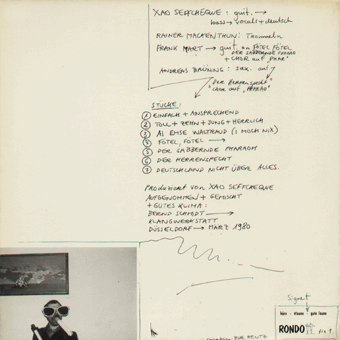 XAO SEFFCHEQUE : guit.
bass → vocals + deutsch
RAINER MACKENTHUN: Trommeln
FRANK MART → guit. on FÖTEL, FÖTEL
DER SABBERNDE PHARAO
+ CHOR auf "PHAR"
ANDREAS BRÜNING: sax. auf
"Der Herrenspecht"
"CHOR auf PHARAO"
STÜCKE:
1 EINFACH + ANSPRECHEND
2 TOLL + ZEHN + DING + HERRLICH
3 AI EMSE WALTRAUD (I MOCH NIX)
4 FÖTEL, FÖTEL →
5 DER SABBERNDE PHARAOH
6 DER HERRENSPECHT
7 DEUTSCHLAND NICHT ÜBER ALLES.
Produziert von XAO SEFFCHEQUE
AUFGENOMMEN + GEMISCHT
+ GUTES KLIMA:
BERND SCHMIDT →
KLANGWERKSTATT
DÜSSELDORF → MÄRZ 1980
Signet
gute laune
RONDO